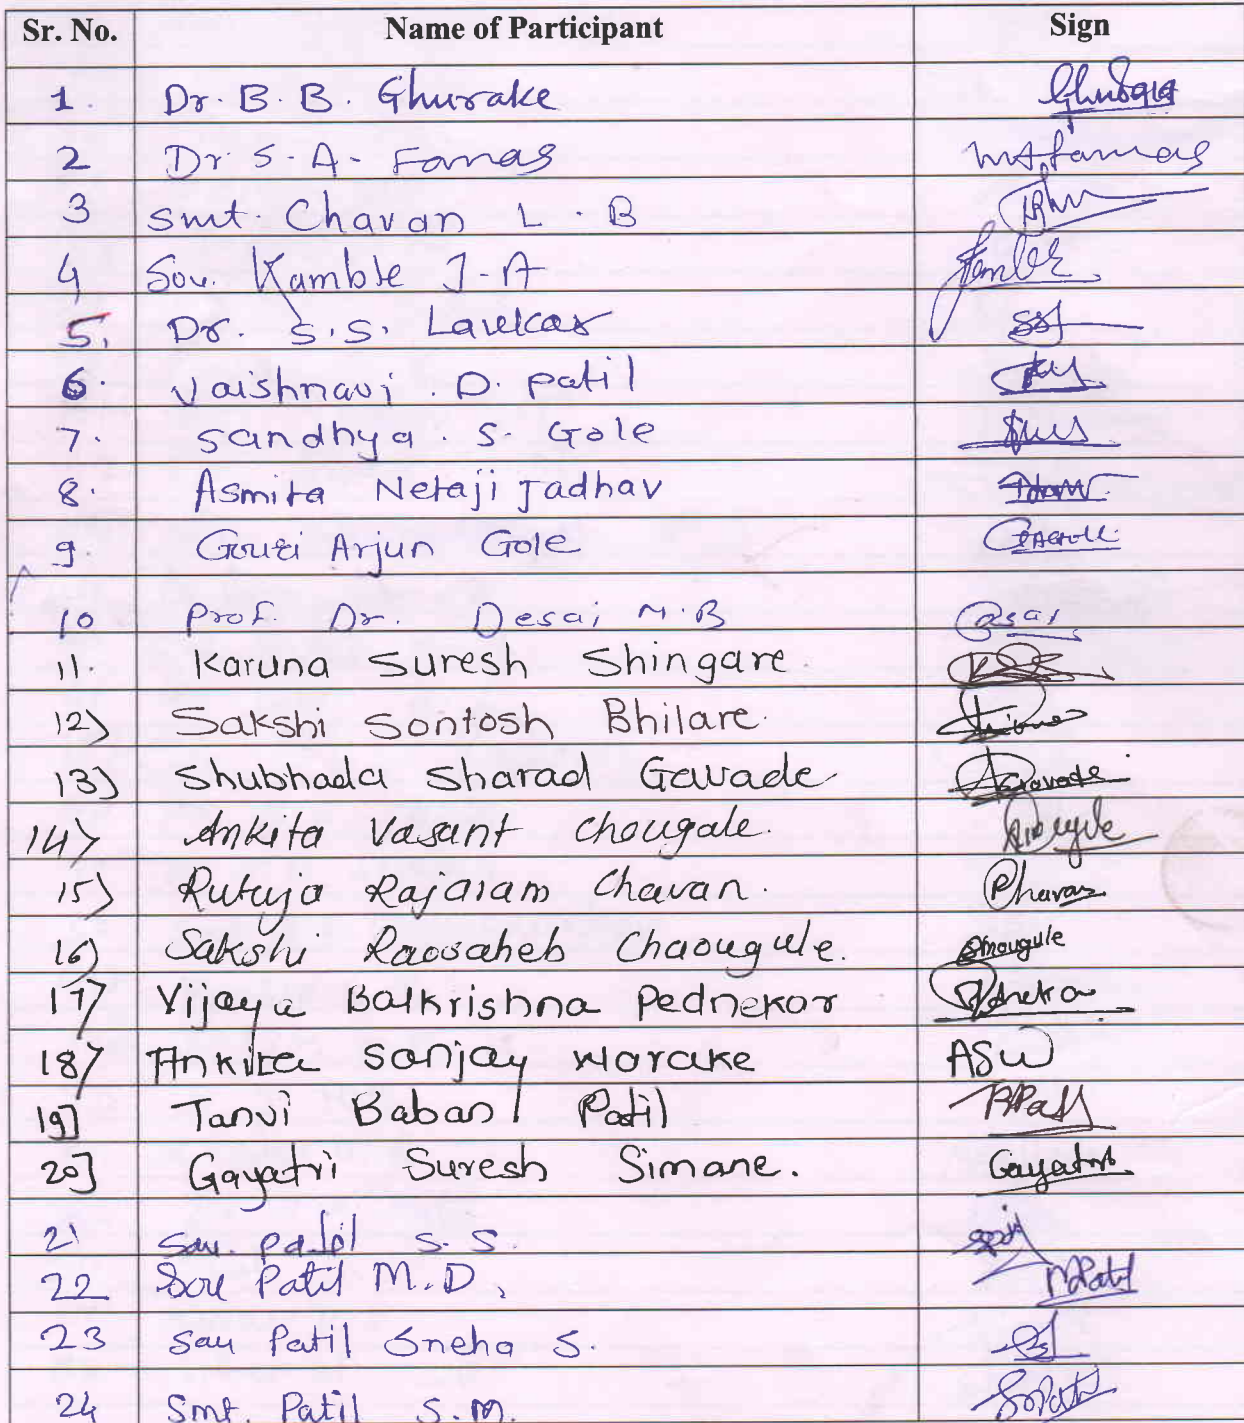 Sr. No. Name of Participant Sign
1. Dr. B. B. Ghurake
2 Dr S. A. Farnas
3 Smt. Chavan L. B
4 Sou. Kamble J-A
5. Dr. S.S. Lavekar
6. Vaishnavi . D. Patil
7. Sandhya . S. Gole
8. Asmita Netaji Jadhav
9. Gouri Arjun Gole
10 Prof. Dr. Desai M.B Desai
11. Karuna Suresh Shingare.
12) Sakshi Sontosh Bhilare.
13) Shubhada Sharad Gavade Gavade
14) Ankita Vasant Chougale.
15) Rutuja Rajaram Chavan. RChavan
16) Sakshi Raosaheb Chaougule. Chougule
17) Vijaya Balkrishna Pednekar
18) Ankita Sanjay Warake ASW
19] Tanvi Baban Patil
20] Gayatri Suresh Simane. Gayatri
21 Sau. Patil S. S.
22 Sou Patil M.D. MPatil
23 Sau Patil Sneha S.
24 Smt. Patil S.M. SMPatil